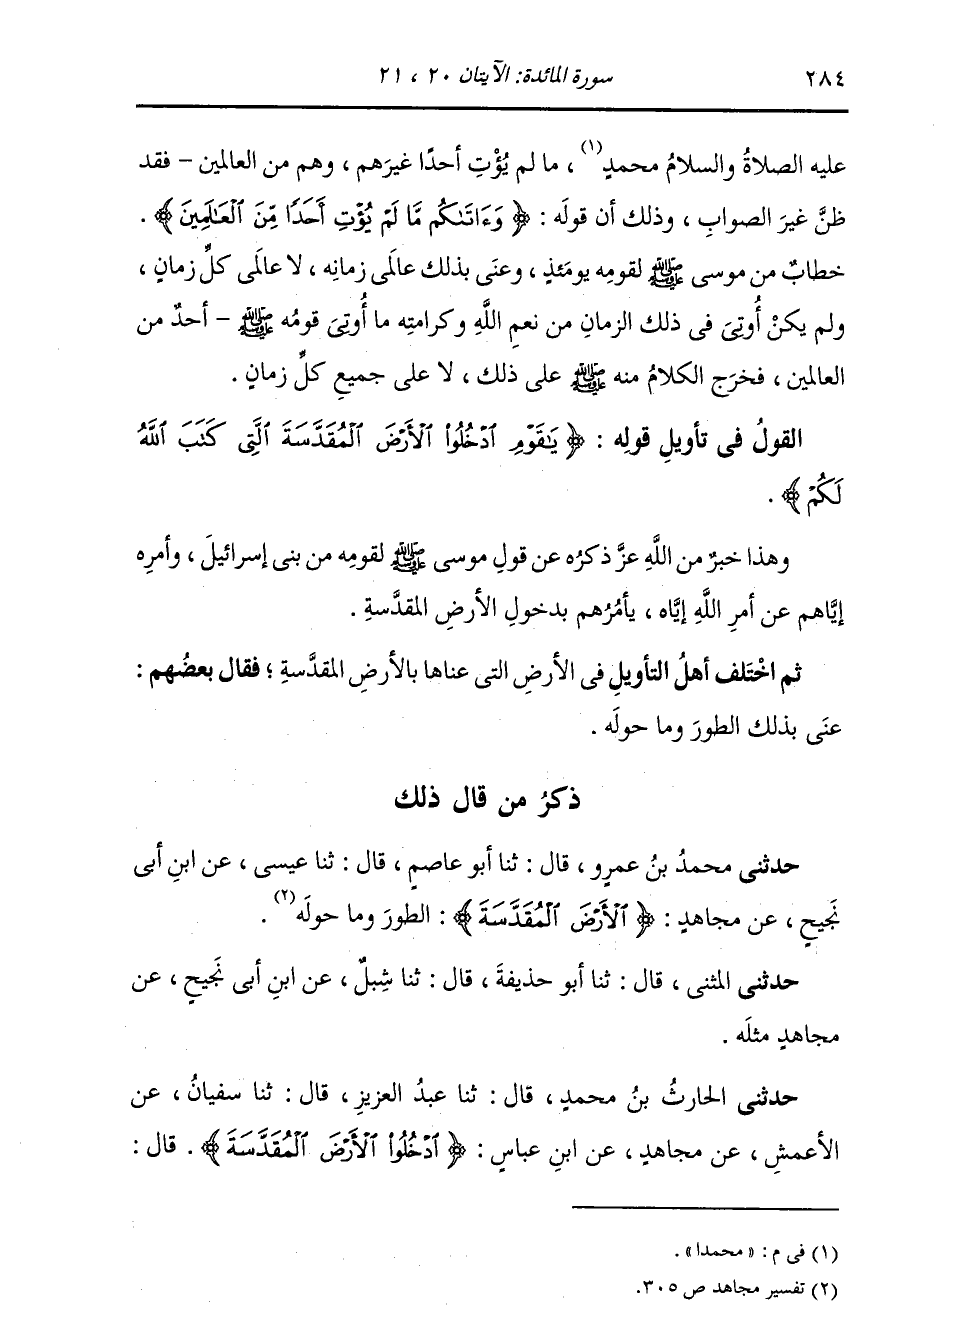 ٢٨٤ سورة المائدة: الآيتان ٢٠ ، ٢١
عليه الصلاةُ والسلامُ محمدٍ(١) ، ما لم يُؤْتِ أحدًا غيرَهم ، وهم من العالمين – فقد
ظنَّ غيرَ الصوابِ ، وذلك أن قولَه : ﴿ وَءَاتَىٰكُم مَّا لَمْ يُؤْتِ أَحَدًا مِّنَ ٱلْعَـٰلَمِينَ ﴾ .
خطابٌ من موسى ﷺ لقومِه يومَئذٍ ، وعنَى بذلك عالَمى زمانِه ، لا عالَمى كلِّ زمانٍ ،
ولم يكنْ أُوتِىَ فى ذلك الزمانِ من نعمِ اللَّهِ وكرامتِه ما أُوتِىَ قومُه ﷺ – أحدٌ من
العالمين ، فخرَج الكلامُ منه ﷺ على ذلك ، لا على جميعِ كلِّ زمانٍ .
القولُ فى تأويلِ قولِه : ﴿ يَـٰقَوْمِ ٱدْخُلُوا۟ ٱلْأَرْضَ ٱلْمُقَدَّسَةَ ٱلَّتِى كَتَبَ ٱللَّهُ
لَكُمْ ﴾ .
وهذا خبرٌ من اللَّهِ عزَّ ذكرُه عن قولِ موسى ﷺ لقومِه من بنى إسرائيلَ ، وأمرِه
إيَّاهم عن أمرِ اللَّهِ إيَّاه ، يأمُرُهم بدخولِ الأرضِ المقدَّسةِ .
ثم اخْتَلف أهلُ التأويلِ فى الأرضِ التى عناها بالأرضِ المقدَّسةِ ؛ فقال بعضُهم :
عنَى بذلك الطورَ وما حولَه .
ذكرُ من قال ذلك
حدثنى محمدُ بنُ عمرٍو ، قال : ثنا أبو عاصمٍ ، قال : ثنا عيسى ، عن ابنِ أبى
نَجيحٍ ، عن مجاهدٍ : ﴿ ٱلْأَرْضَ ٱلْمُقَدَّسَةَ ﴾ : الطورَ وما حولَه(٢) .
حدثنى المثنى ، قال : ثنا أبو حذيفةَ ، قال : ثنا شِبلٌ ، عن ابنِ أبى نَجيحٍ ، عن
مجاهدٍ مثلَه .
حدثنى الحارثُ بنُ محمدٍ ، قال : ثنا عبدُ العزيزِ ، قال : ثنا سفيانُ ، عن
الأعمشِ ، عن مجاهدٍ ، عن ابنِ عباسٍ : ﴿ ٱدْخُلُوا۟ ٱلْأَرْضَ ٱلْمُقَدَّسَةَ ﴾ . قال :
(١) فى م : « محمدا » .
(٢) تفسير مجاهد ص ٣٠٥.